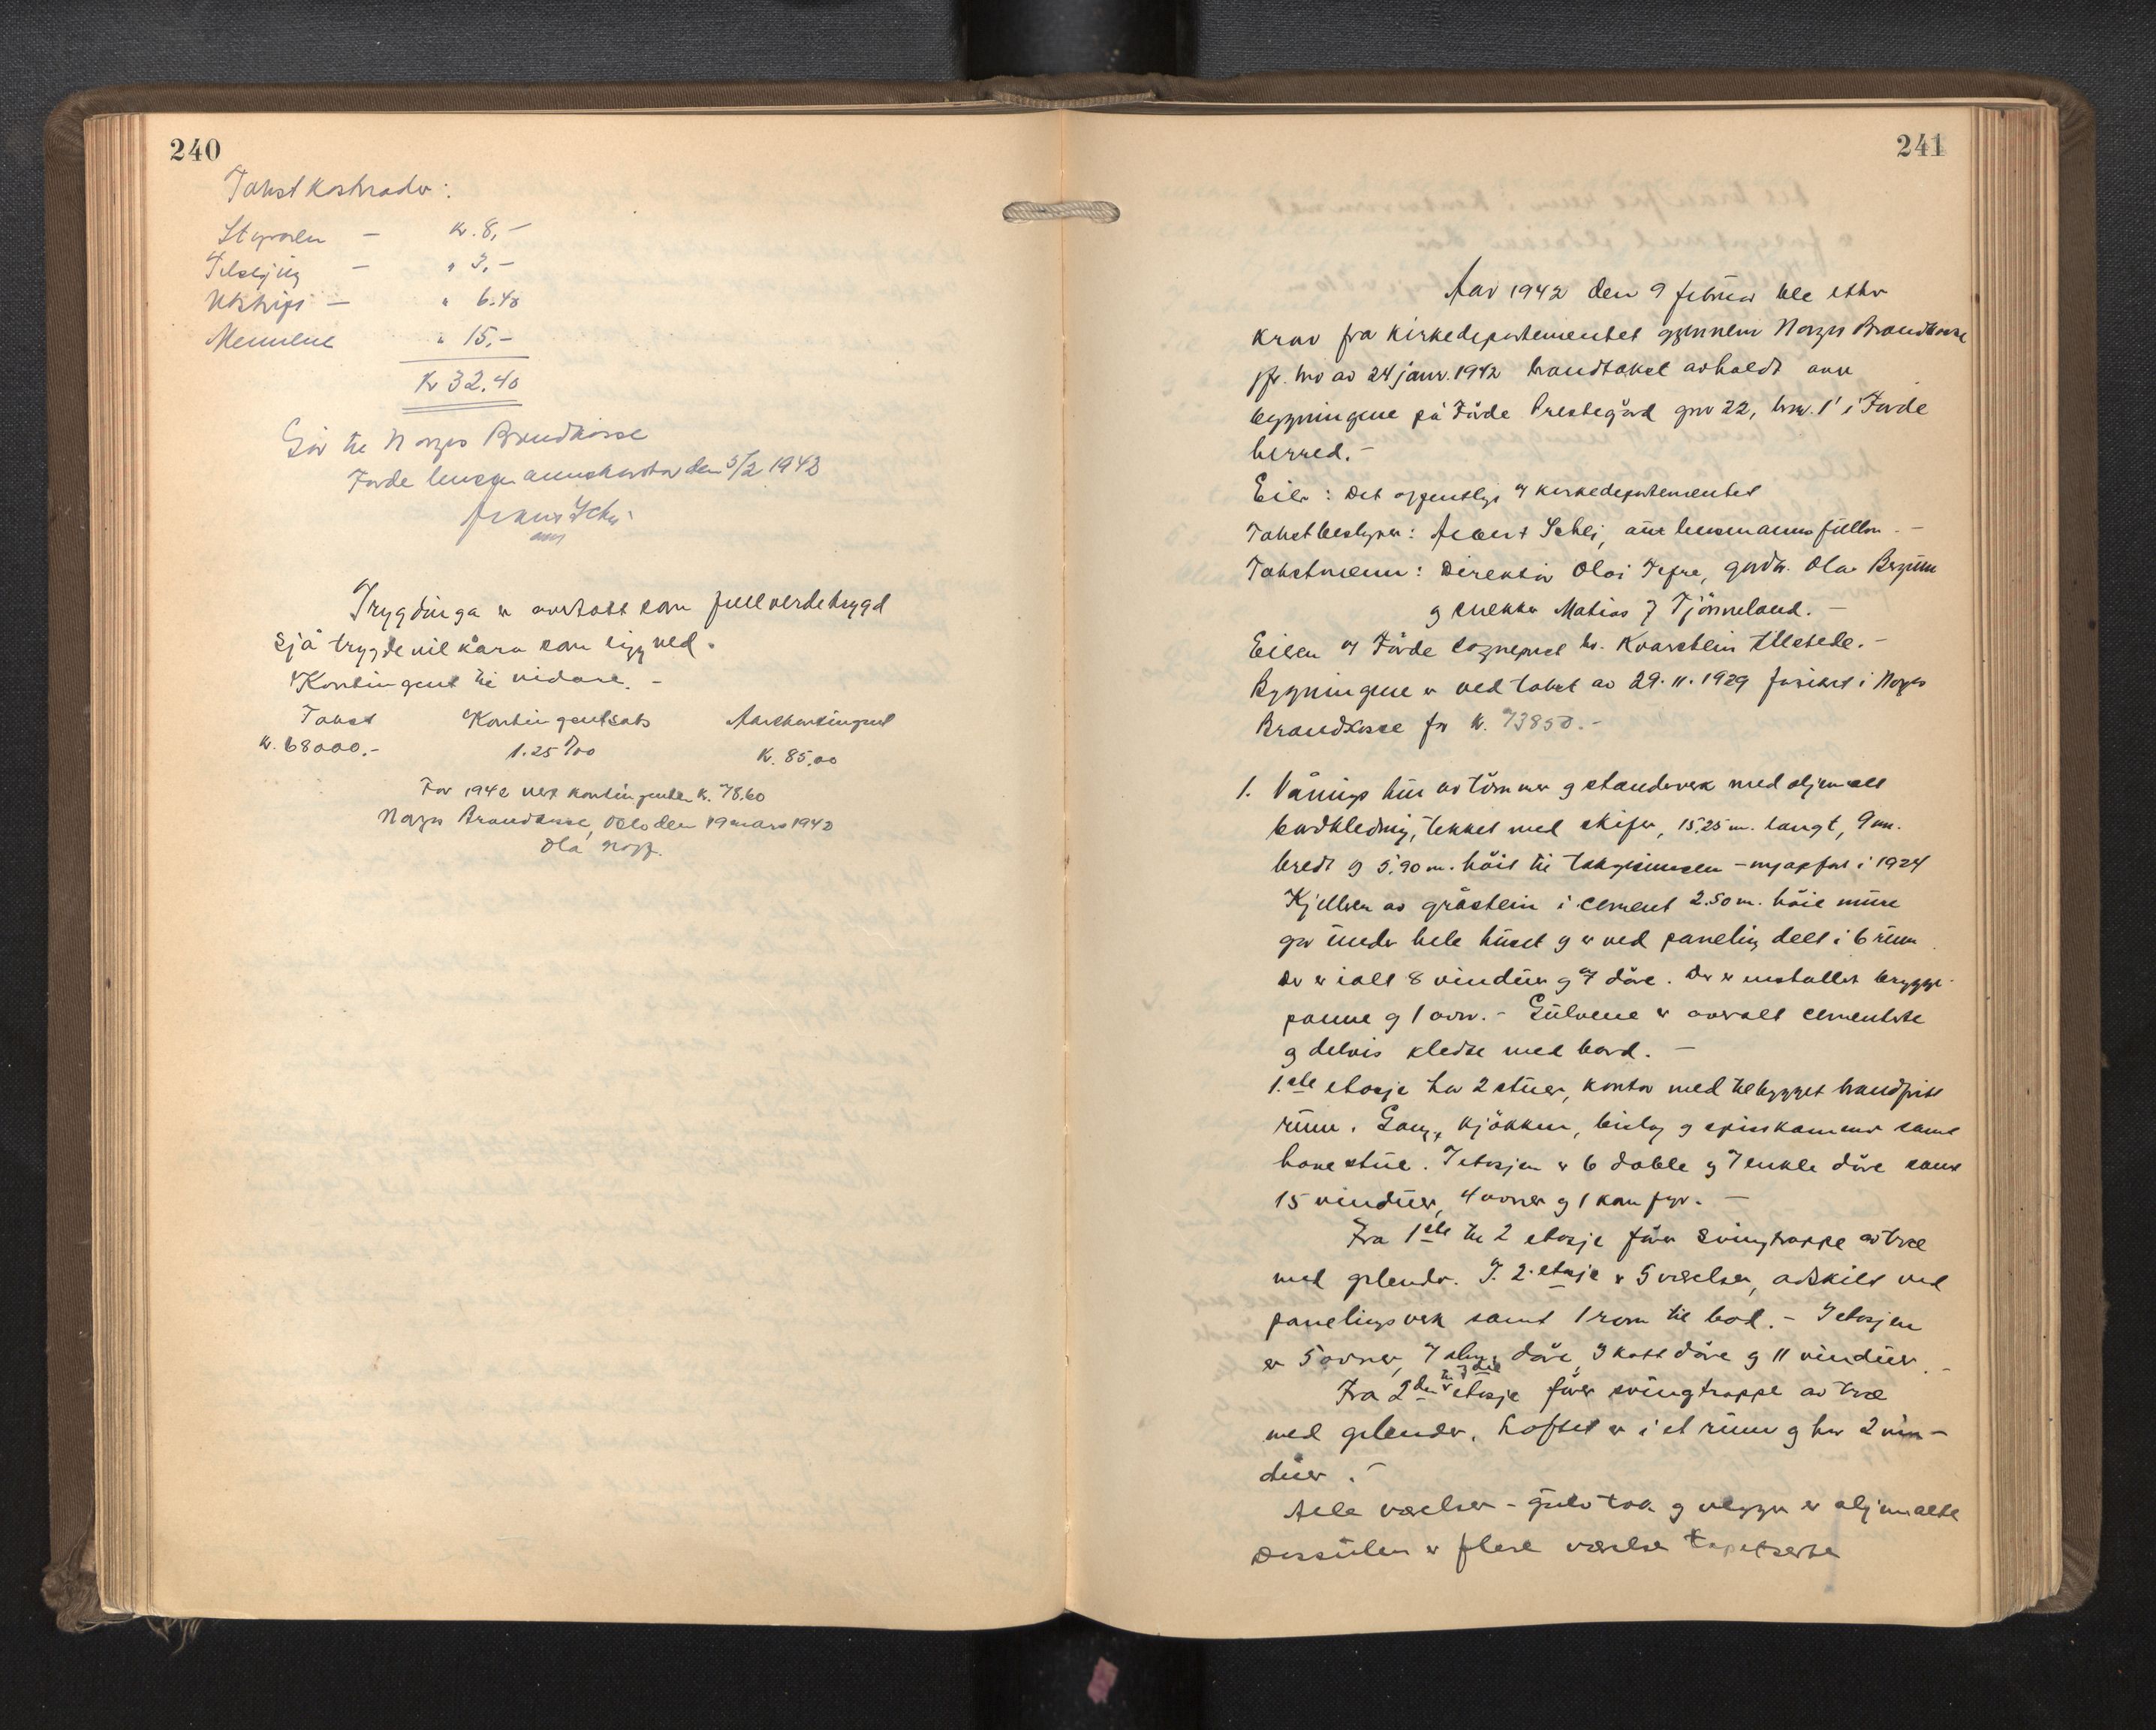 240
Takstkostnader:
Styraren — kr. 8,-
Tilseging — " 3,-
Utskrift — " 6.40
Mennene " 15,-
Kr 32.40
Går til Norges Brandkasse
Førde lensmannskontor den 5/2 1942
Trygdinga er avslutt som fullverdetrygd
sjå trygdevilkåra som ligg ved.
Kontingent til vidare. -
Takst Kontingentsats Årskontingent
kr. 68000.- 1.25 ‰ kr. 85,00
For 1942 vert kontingenten kr. 78.60
Norges Brandkasse, Oslo den 19 mars 1942
Ola
241
Aar 1942 den 9 februar ble etter
krav fra kirkedepartementet gjennem Norges Brandkasse
jfr. brev av 24 janr. 1942 brandtakst avholdt over
bygningene på Førde Prestegård gnr 22, bnr. 1 i Førde
herred.-
Eier: Det offentlige v/ kirkedepartementet
Takstbestyrer: Schei, aut lensmannsfullm. -
Takstmenn: Direktør Olai Tefre, gårdbr. Ola Bergum
og snekker Matias J Tjönneland. -
Eieren v/ Förde sogneprest hr. Kvarstein tilstede. -
Bygningene er ved takst av 29.11.1929 forsikret i Norges
Brandkasse for kr. 73850.-
1. Vånings hus av tömmer og standerverk med oljemalt
bordkledning, tekket med skifer, 15,25 m. langt, 9 m.
bredt og 5,90 m. höit til takgesimsen - nyopfört i 1924
Kjelleren av gråstein i cement 2.50 m. höie mure
går under hele huset og er ved paneling delt i 6 rum.
Der er ialt 8 vinduer og 7 döre. Der er installert brygge-
panne og 1 ovn. - Gulvene er overalt cementerte
og delvis kledte med bord. —
1.ste etasje har 2 stuer, kontor med tilbygget brandfrit
rum. Gang, kjökken, bislag og spiskammer samt
havestue. I etasjen er 6 doble og 7 enkle döre samt
15 vinduer, 4 ovner og 1 komfyr. —
Fra 1ste til 2 etasje förer svingtrappe av træ
med gelender. I 2. etasje er 5 værelser, adskilt ved
panelingsverk samt 1 rom til bod. - I etasjen
er 5 ovner, 7 alm. döre, 3 kott döre og 11 vinduer. -
Fra 2den til 3die etasje förer svingtrappe av træ
med gelender. Loftet er i et rum og har 2 vin-
duer. -
Alle værelser - gulv tak og vegger er oljemalte
Dessuten er flere værelser tapetserte